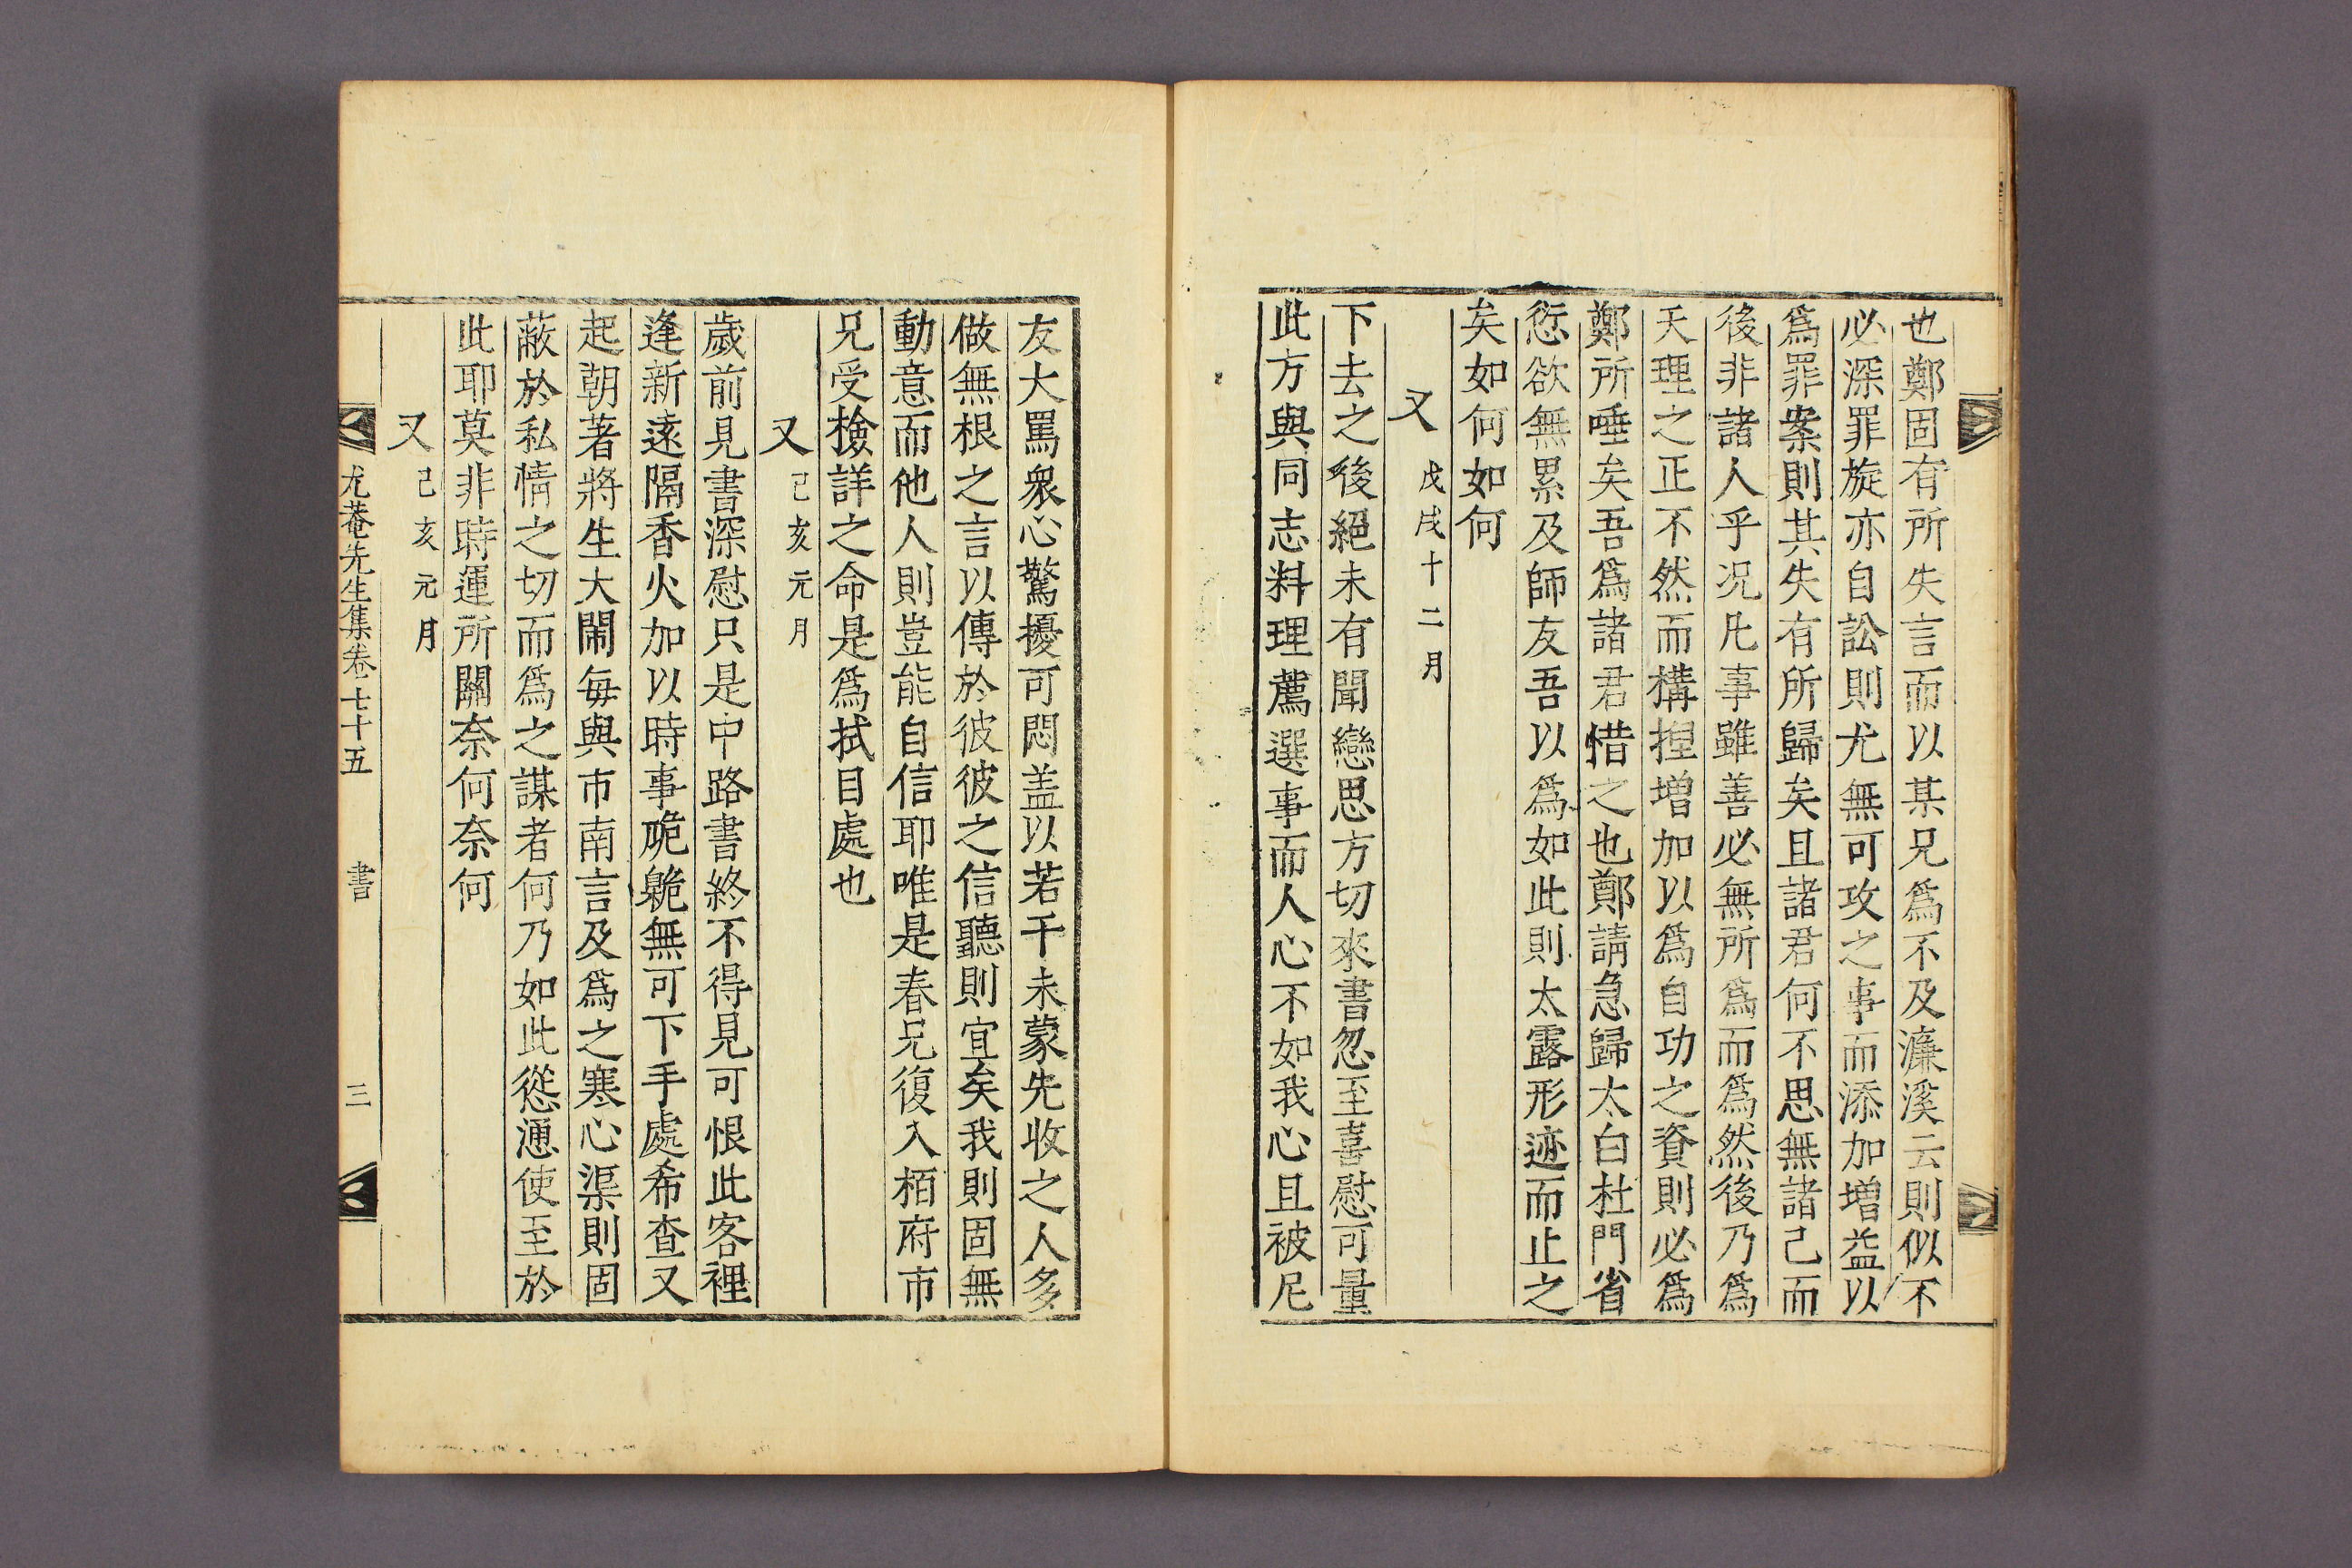 也鄭固有所失言而以某兄爲不及濂溪云則似不
必深罪旋亦自訟則尤無可攻之事而添加增益以
爲罪案則其失有所歸矣且諸君何不思無諸己而
後非諸人乎况凡事雖善必無所爲而爲然後乃爲
天理之正不然而構揑增加以爲自功之資則必爲
鄭所唾矣吾爲諸君惜之也鄭請急歸太白杜門省
愆欲無累及師友吾以爲如此則太露形迹而止之
矣如何如何
又 戊戌十二月
下去之後絕未有聞戀思方切來書忽至喜慰可量
此方與同志料理薦選事而人心不如我心且被尼
友大罵衆心驚擾可悶盖以若干未蒙先收之人多
做無根之言以傳於彼彼之信聽則宜矣我則固無
動意而他人則豈能自信耶唯是春兄復入栢府市
兄受檢詳之命是爲拭目處也
又 己亥元月
歲前見書深慰只是中路書終不得見可恨此客裡
逢新遠隔香火加以時事脆䠥無可下手處希查又
起朝著將生大鬧每與市南言及爲之寒心渠則固
蔽於私情之切而爲之謀者何乃如此慫慂使至於
此耶莫非時運所關奈何奈何
又 己亥元月
尤菴先生集卷七十五 書 三